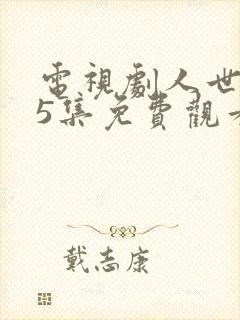 電視劇人世
5集免費觀
戴志康